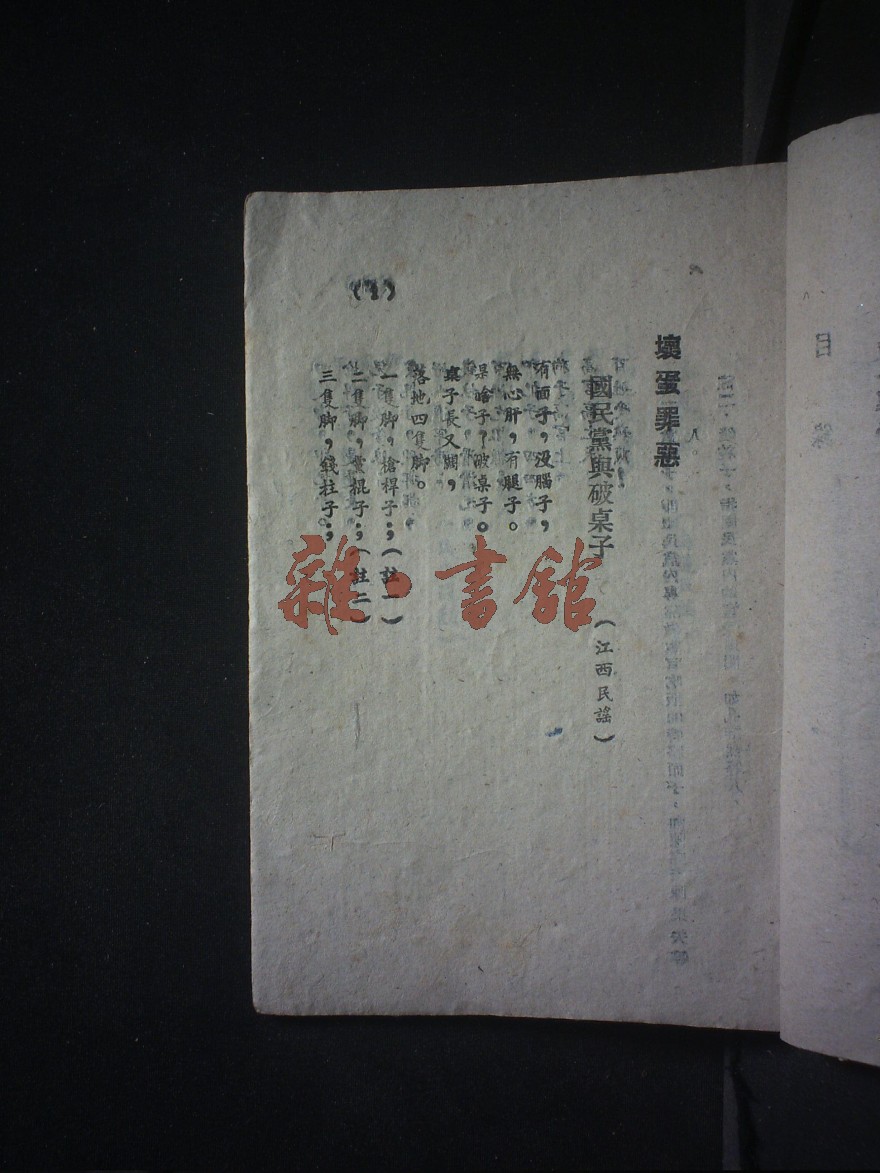 壞蛋罪惡
國民黨與破桌子（江西民謠）
有面子，没腦子，
無心肝，有腿子。
是啥子？破桌子。
桌子長又闊，
落地四隻脚。
一隻脚，槍桿子；（註一）
二隻脚，黨棍子；（註二）
三隻脚，錢柱子；
（1）
目錄
雜·書館